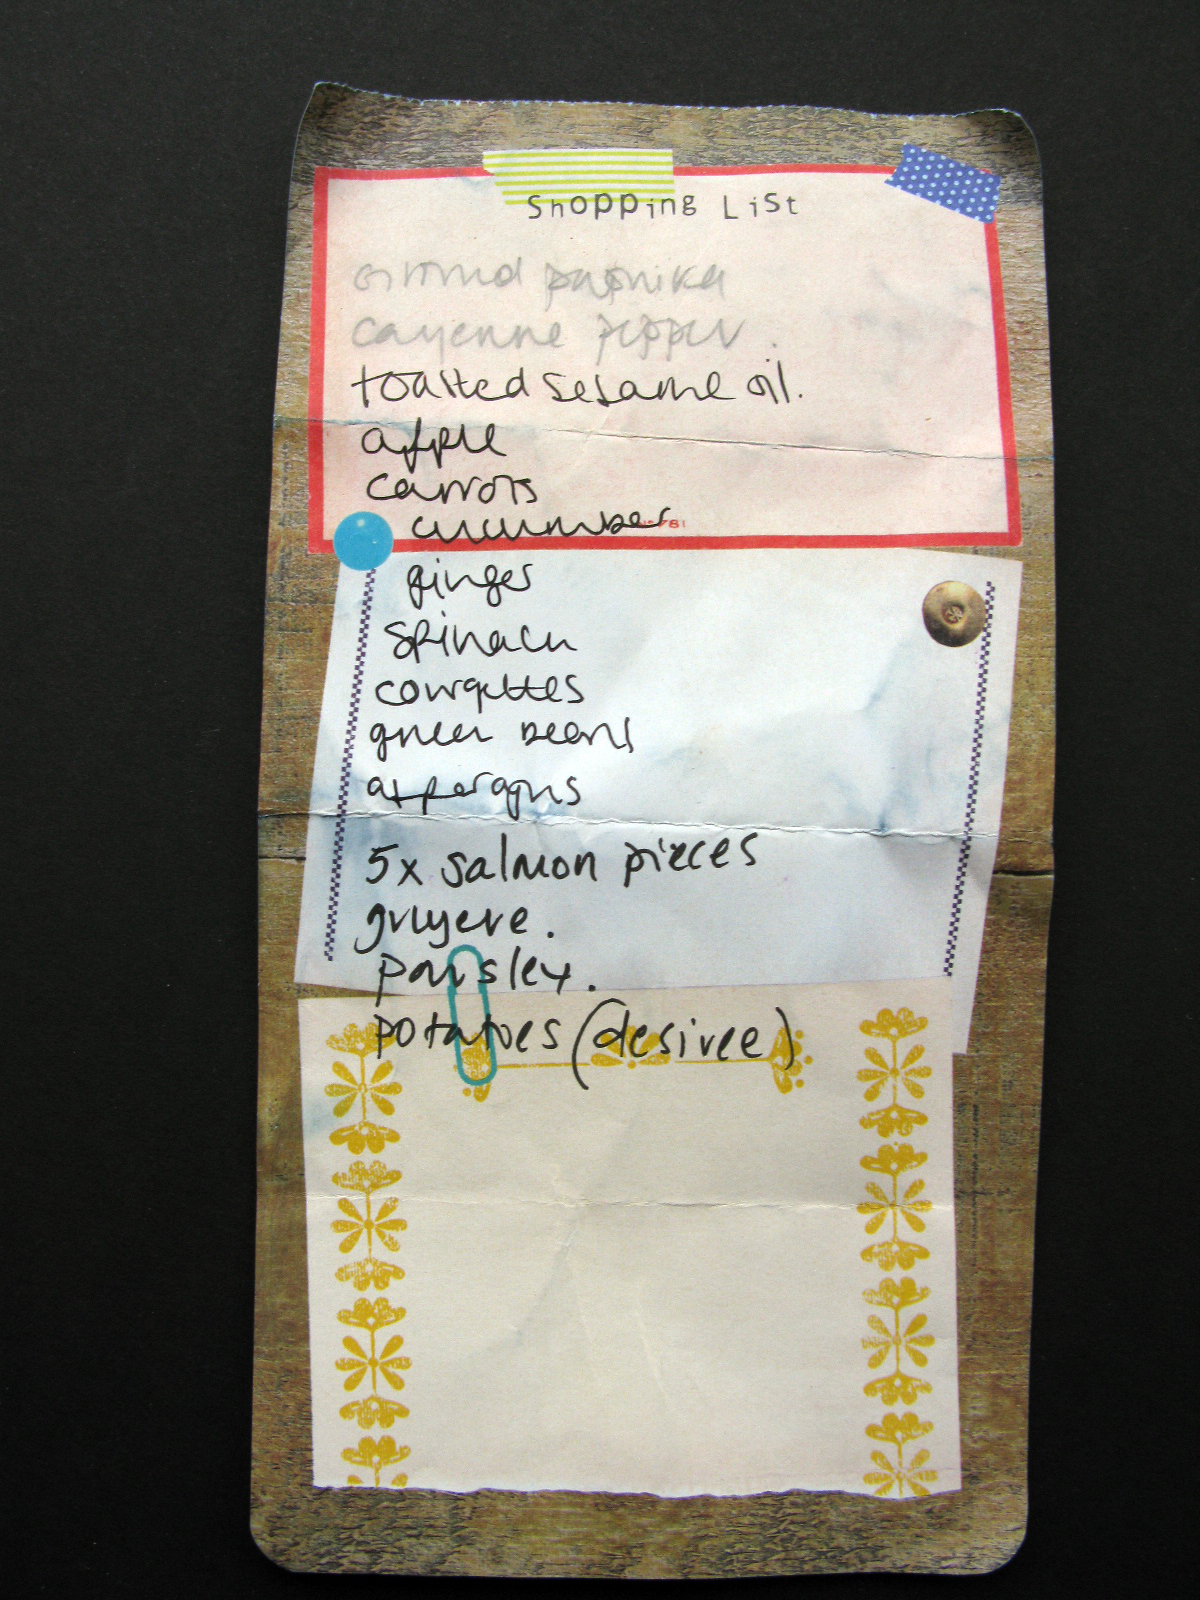 Shopping List
ground paprika
cayenne pepper.
toasted sesame oil.
apple
carrots
cucumber
ginger
spinach
courgettes
green beans
aspergus
5x salmon pieces
gruyere.
parsley.
potatoes (desiree)